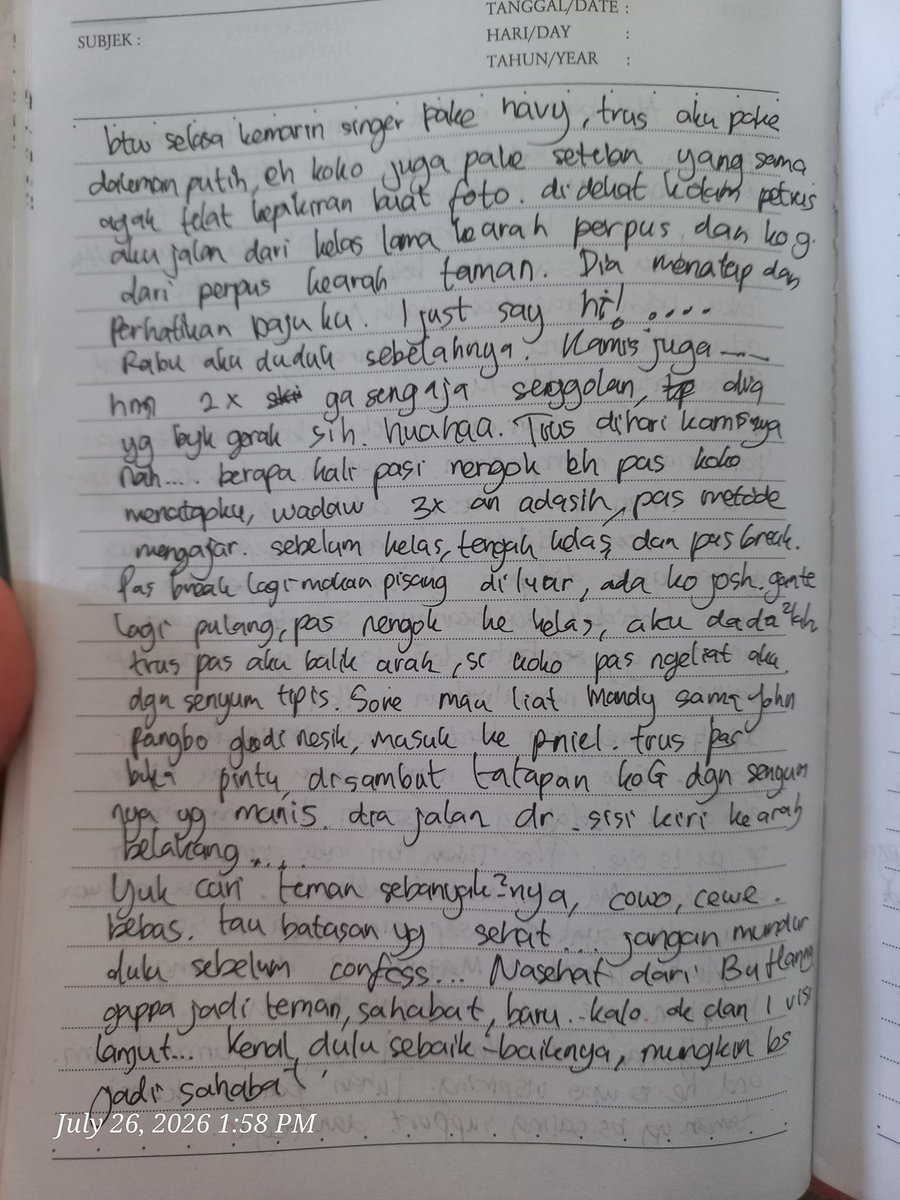 SUBJEK :
TANGGAL/DATE :
HARI/DAY :
TAHUN/YEAR :
btw selasa kemarin singer pake navy, trus aku pake
daleman putih, eh koko juga pake setelan yang sama
agak telat kepikiran buat foto. didekat kolam petrus
aku jalan dari kelas lama kearah perpus dan ko g.
dari perpus kearah taman. Dia menatap dan
perhatikan bajuku. I just say hi! ....
Rabu aku duduk sebelahnya. Kamis juga
hmm 2x ga sengaja senggolan, dua
yg byk gerak sih. huahaa. Trus dihari kamisnya
nah.... berapa kali pasi nengok eh pas koko
menatapku, wadaw 3x an adasih, pas metode
mengajar. sebelum kelas, tengah kelas, dan pas break.
Pas break lagi makan pisang diluar, ada ko josh.
lagi pulang, pas nengok ke kelas, aku dada²kah
trus pas aku balik arah, si koko pas ngeliat aku
dgn senyum tipis. Sore mau liat Mandy sama John
Pangbo gladi resik, masuk ke pniel. trus pas
buka pintu, disambut tatapan koG dgn senyum
nya yg manis. dia jalan dr sisi kiri kearah
belakang ....
Yuk cari teman sebanyak²nya, cowo, cewe.
bebas. tau batasan yg sehat... jangan mundur
dulu sebelum confess... Nasehat dari Bu
gappa jadi teman, sahabat, baru.. kalo ok dan 1 visi
lanjut... Kenal dulu sebaik-baiknya, mungkin bs
jadi sahabat
July 26, 2026 1:58 PM